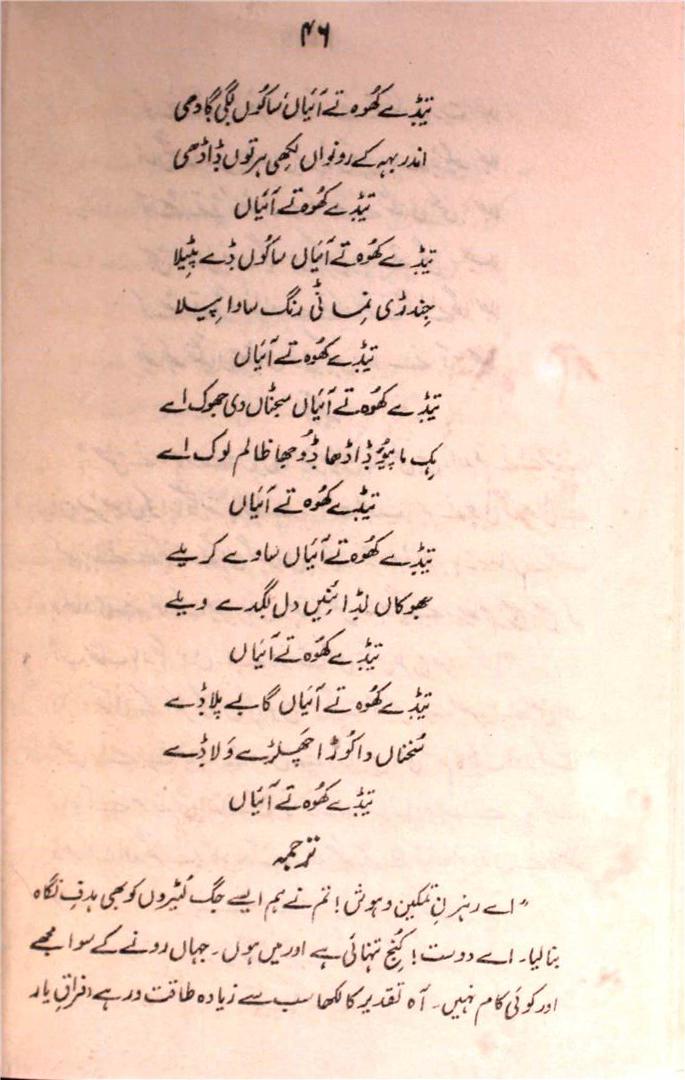 ۴۶
تیڈے کھُوہ تے آئیاں ساکُوں لگی گادھی
اندر بہہ کے رونواں لکھی ہر توں ڈاڈھی
تیڈے کھُوہ تے آئیاں
تیڈے کھُوہ تے آئیاں ساکُوں ڈے پٹیلا
جِندڑی نِمانی رنگ ساوا پیلا
تیڈے کھُوہ تے آئیاں
تیڈے کھُوہ تے آئیاں سجناں دی جھوک اے
ہِک ماپیو ڈاڈھا ڈُوجھا ظالم لوک اے
تیڈے کھُوہ تے آئیاں
تیڈے کھُوہ تے آئیاں ساوے کریلے
بھوکاں لڈائیں دل لگدے ویلے
تیڈے کھُوہ تے آئیاں
تیڈے کھُوہ تے آئیاں گابے پلا ڈے
سُخناں دا کُوڑا چھلڑے ولا ڈے
تیڈے کھُوہ تے آئیاں
ترجمہ
"اے رہزنِ تمکین و ہوش! تم نے ہم ایسے جگ لُٹیروں کو بھی ہدفِ نگاہ
بنا لیا۔ اے دوست! کُنجِ تنہائی ہے اور میں ہوں۔ جہاں رونے کے سوا مجھے
اور کوئی کام نہیں۔ آہ تقدیر کا لکھا سب سے زیادہ طاقت ور ہے، فراقِ یار